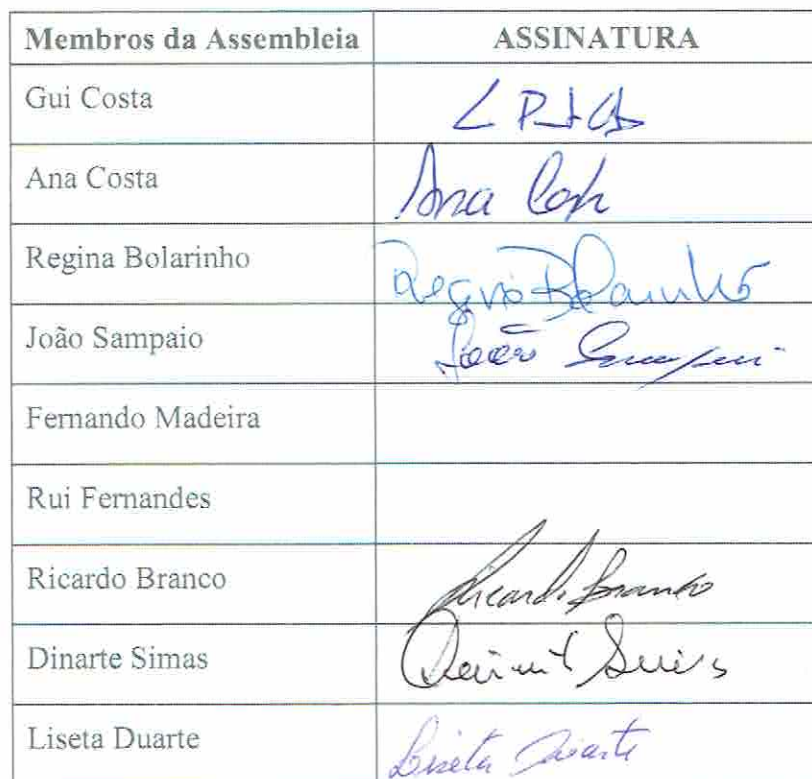 Membros da Assembleia ASSINATURA
Gui Costa
Ana Costa Ana Costa
Regina Bolarinho Regina Bolarinho
João Sampaio João Sampaio
Fernando Madeira
Rui Fernandes
Ricardo Branco Ricardo Branco
Dinarte Simas
Liseta Duarte Liseta Duarte